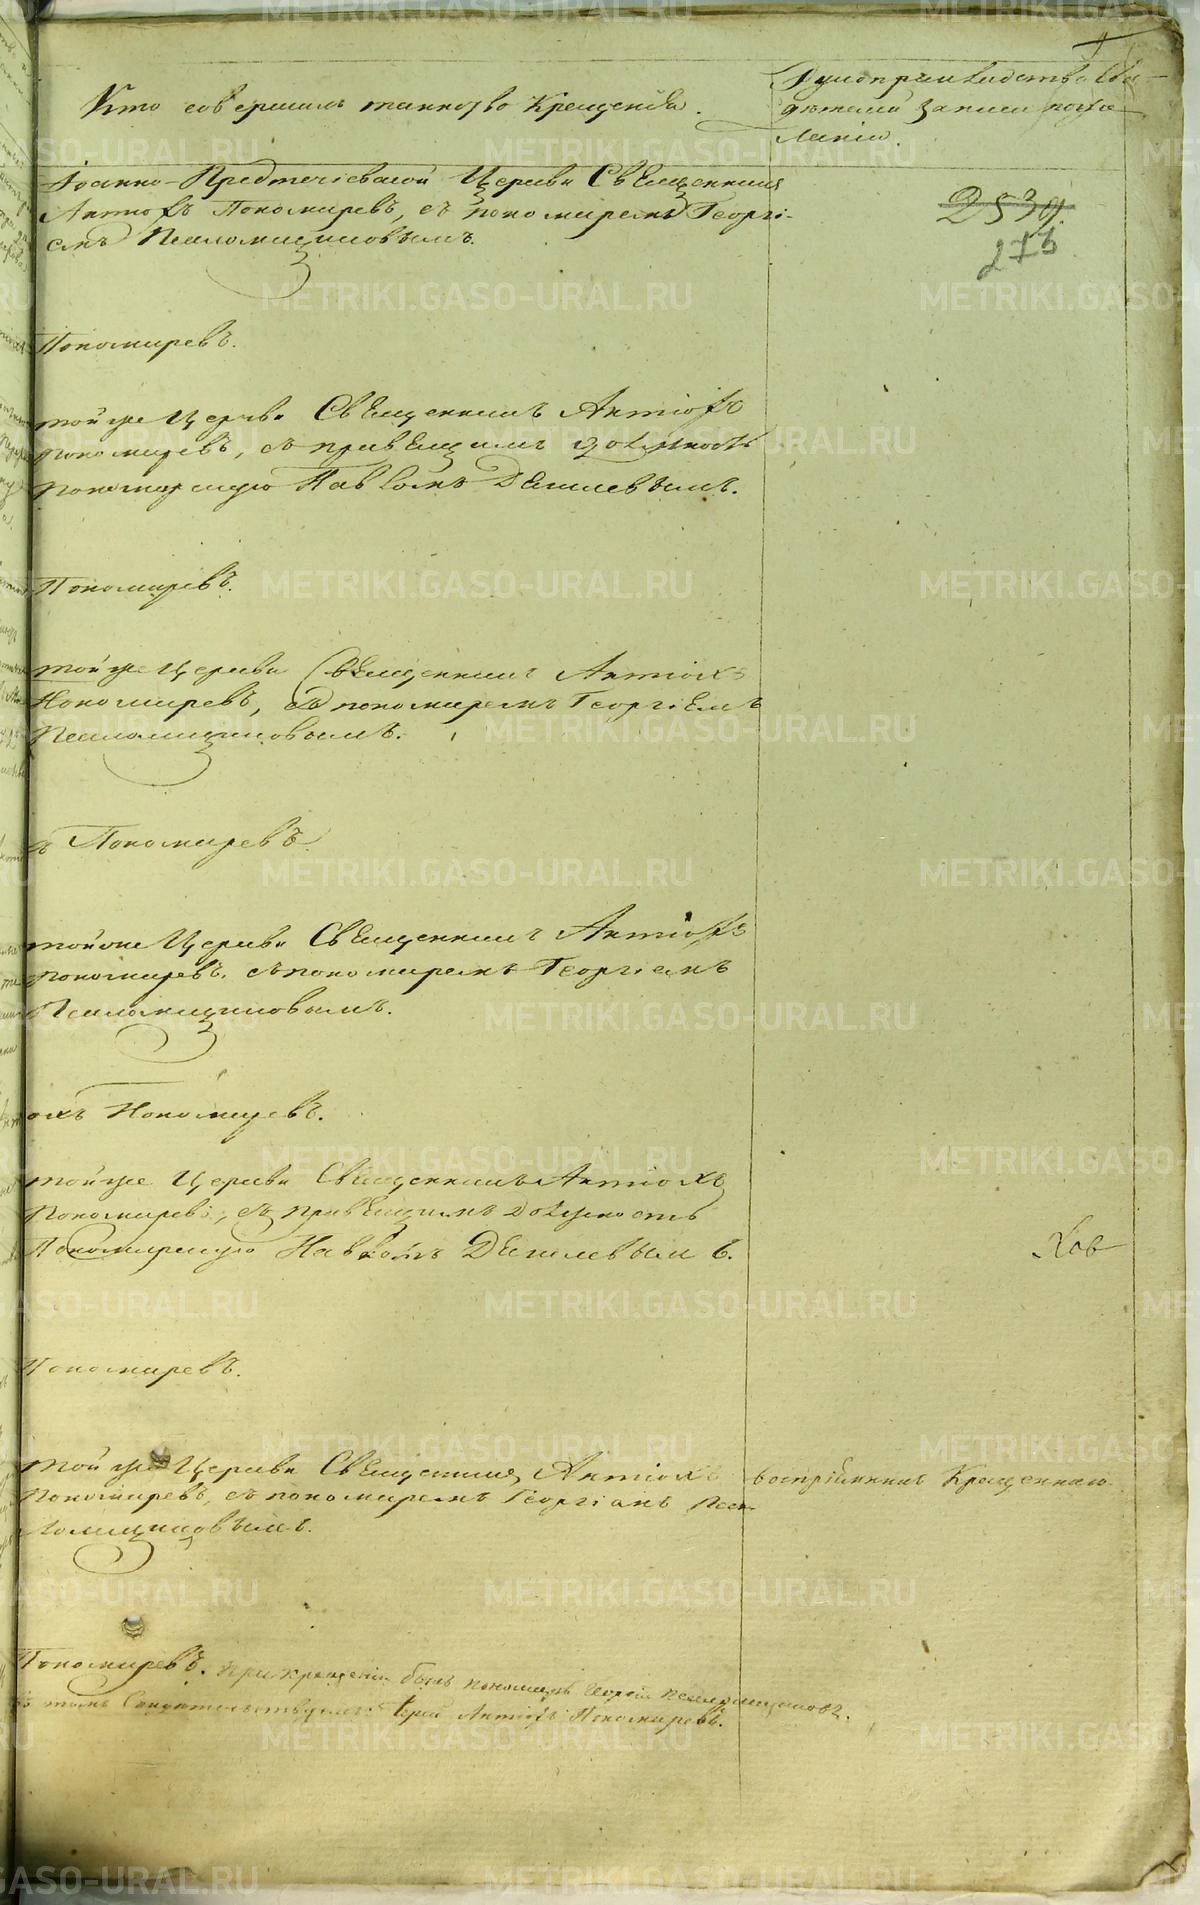 Кто совершилъ таинство Крещенія.
Рукоприкладство Сви-
дѣтелей записи по же
ланію.
Іоанно-Предтечіевской Церкви Священникъ
Антіохъ Пономаревъ, съ пономаремъ Георгі-
емъ Псаломщиковымъ.
2539.
273
Пономаревъ.
той же Церкви Священникъ Антіохъ
Пономаревъ, съ правящимъ должность
пономарскую Павломъ
Пономаревъ.
той же Церкви Священникъ Антіохъ
Пономаревъ, съ пономаремъ Георгіемъ
Псаломщиковымъ.
ъ Пономаревъ.
той же Церкви Священникъ Антіохъ
Пономаревъ, съ пономаремъ Георгіемъ
Псаломщиковымъ.
охъ Пономаревъ.
той же Церкви Священникъ Антіохъ
Пономаревъ, съ правящимъ должность
Пономарскую Павломъ
Пономаревъ.
той же Церкви Священникъ Антіохъ
Пономаревъ, съ пономаремъ Георгіемъ Пса-
ломщиковымъ.
воспріемникъ Крещеннаго
Пономаревъ. при крещеніи былъ пономарь Георгій Псаломщиковъ.
въ томъ Свидѣтельствуемъ: Іерей Антіохъ Пономаревъ.
METRIKI.GASO-URAL.RU